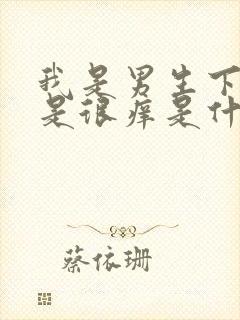 我是男生下
是很痒是什
蔡依珊